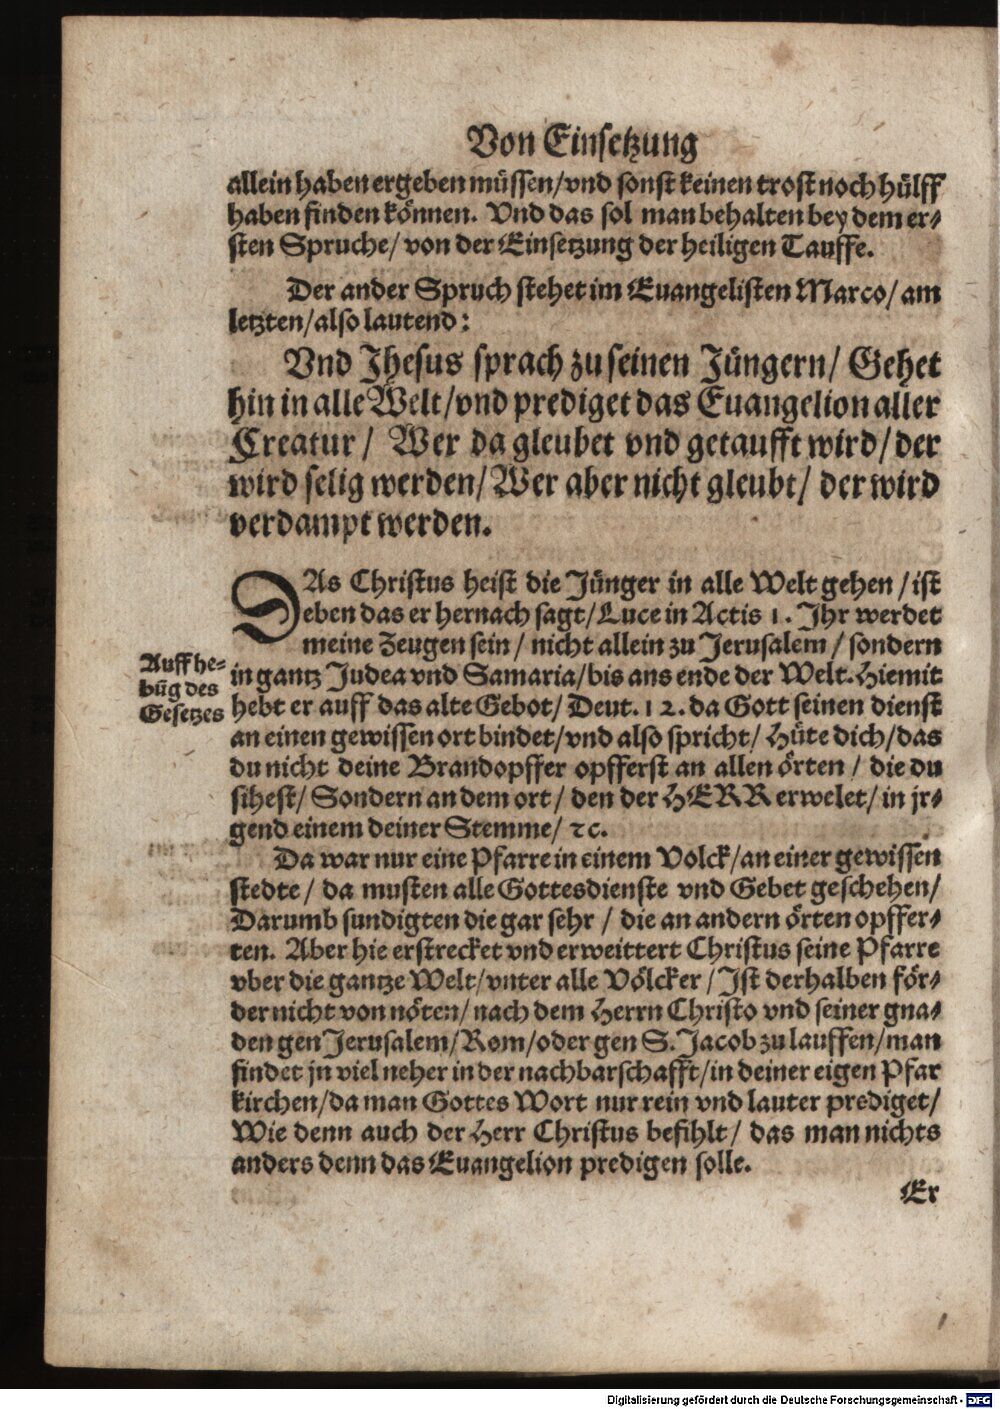 Von Einsetzung
allein haben ergeben müssen/vnd sonst keinen trost noch hülff
haben finden können. Vnd das sol man behalten bey dem er-
sten Spruche/ von der Einsetzung der heiligen Tauffe.
Der ander Spruch stehet im Euangelisten Marco/ am
letzten/also lautend:
Vnd Jhesus sprach zu seinen Jüngern/ Gehet
hin in alle Welt/vnd prediget das Euangelion aller
Creatur/ Wer da gleubet vnd getaufft wird/ der
wird selig werden/ Wer aber nicht gleubt/ der wird
verdampt werden.
DAs Christus heist die Jünger in alle Welt gehen /ist
eben das er hernach sagt/Luce in Actis 1. Jhr werdet
meine Zeugen sein / nicht allein zu Jerusalem / sondern
in gantz Judea vnd Samaria/bis ans ende der Welt. Hiemit
hebt er auff das alte Gebot/ Deut. 12. da Gott seinen dienst
an einen gewissen ort bindet/vnd also spricht/ Hüte dich/das
du nicht deine Brandopffer opfferst an allen örten / die du
sihest/ Sondern an dem ort / den der HERR erwelet/ in jr-
gend einem deiner Stemme/ ꝛc.
Auffhe-
būg des
Gesetzes
Da war nur eine Pfarre in einem Volck/an einer gewissen
stedte / da musten alle Gottesdienste vnd Gebet geschehen/
Darumb sundigten die gar sehr / die an andern örten opffer-
ten. Aber hie erstrecket vnd erweittert Christus seine Pfarre
vber die gantze Welt/vnter alle Völcker / Jst derhalben för-
der nicht von nöten/ nach dem Herrn Christo vnd seiner gna-
den gen Jerusalem/Rom/oder gen S. Jacob zu lauffen/man
findet jn viel neher in der nachbarschafft/in deiner eigen Pfar
kirchen/da man Gottes Wort nur rein vnd lauter prediget/
Wie denn auch der Herr Christus befihlt/ das man nichts
anders denn das Euangelion predigen solle.
Er
Digitalisierung gefördert durch die Deutsche Forschungsgemeinschaft - DFG